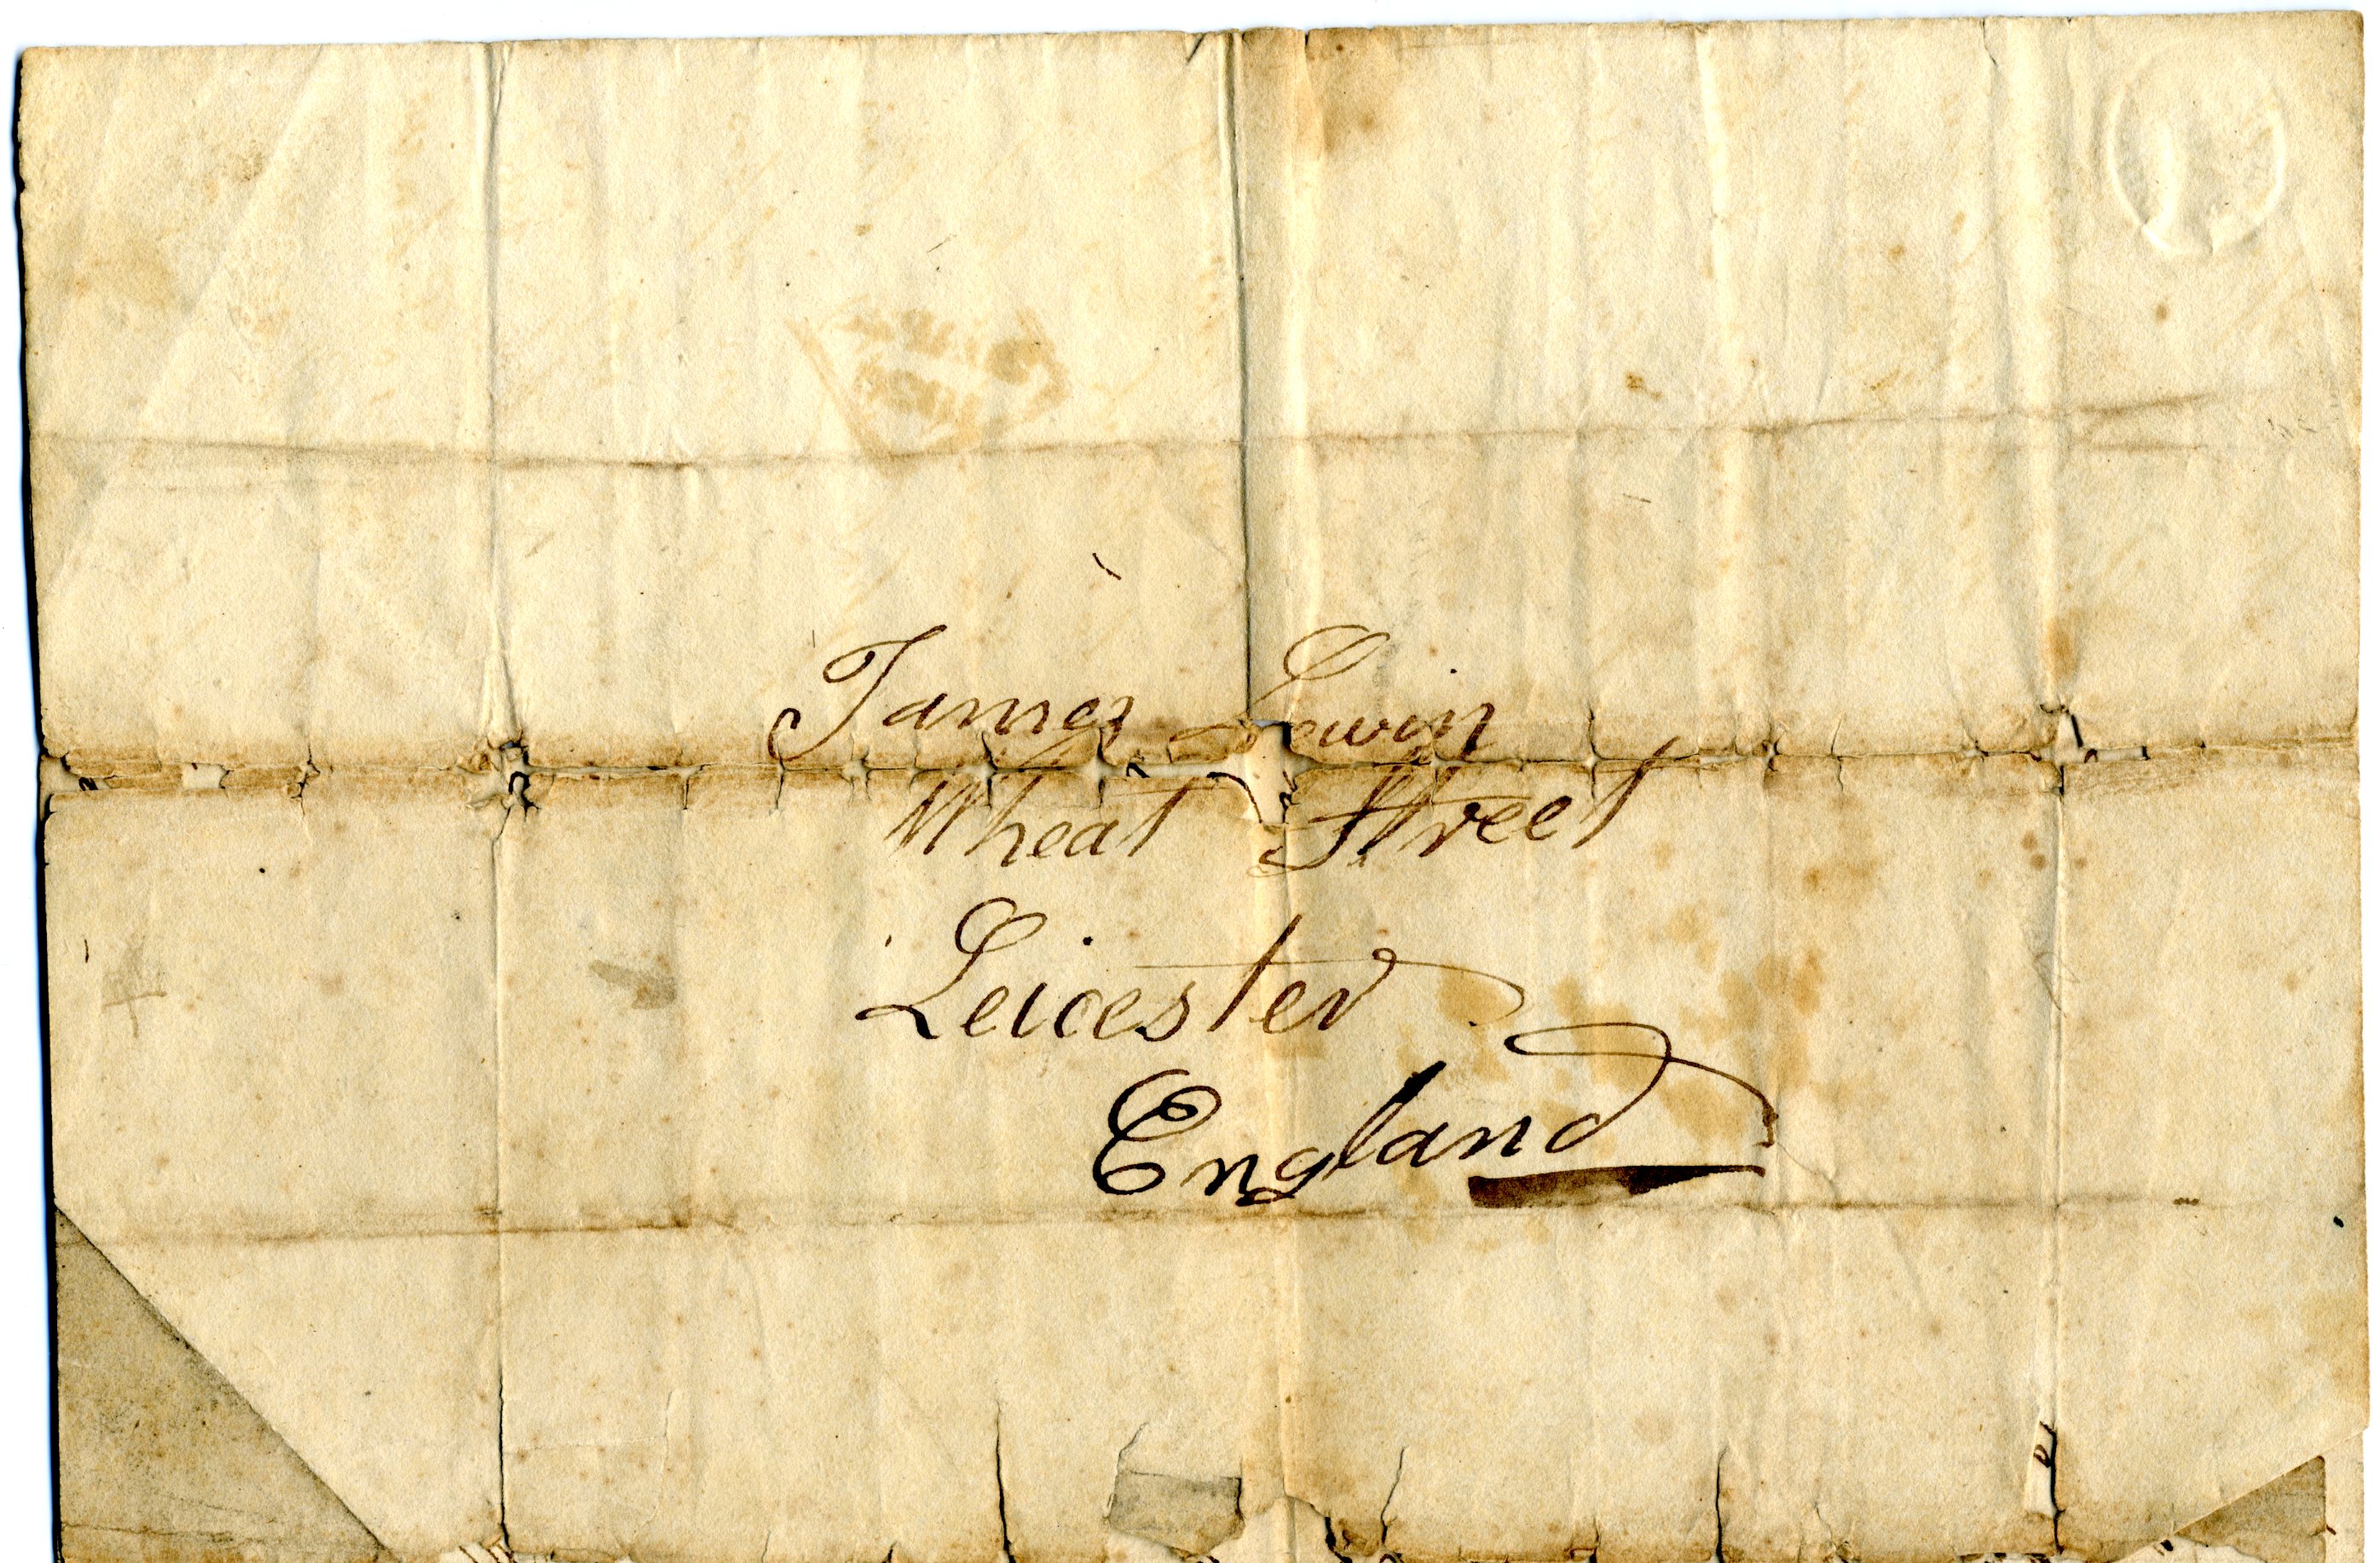 James Lewin
Wheat Street
Leicester
England